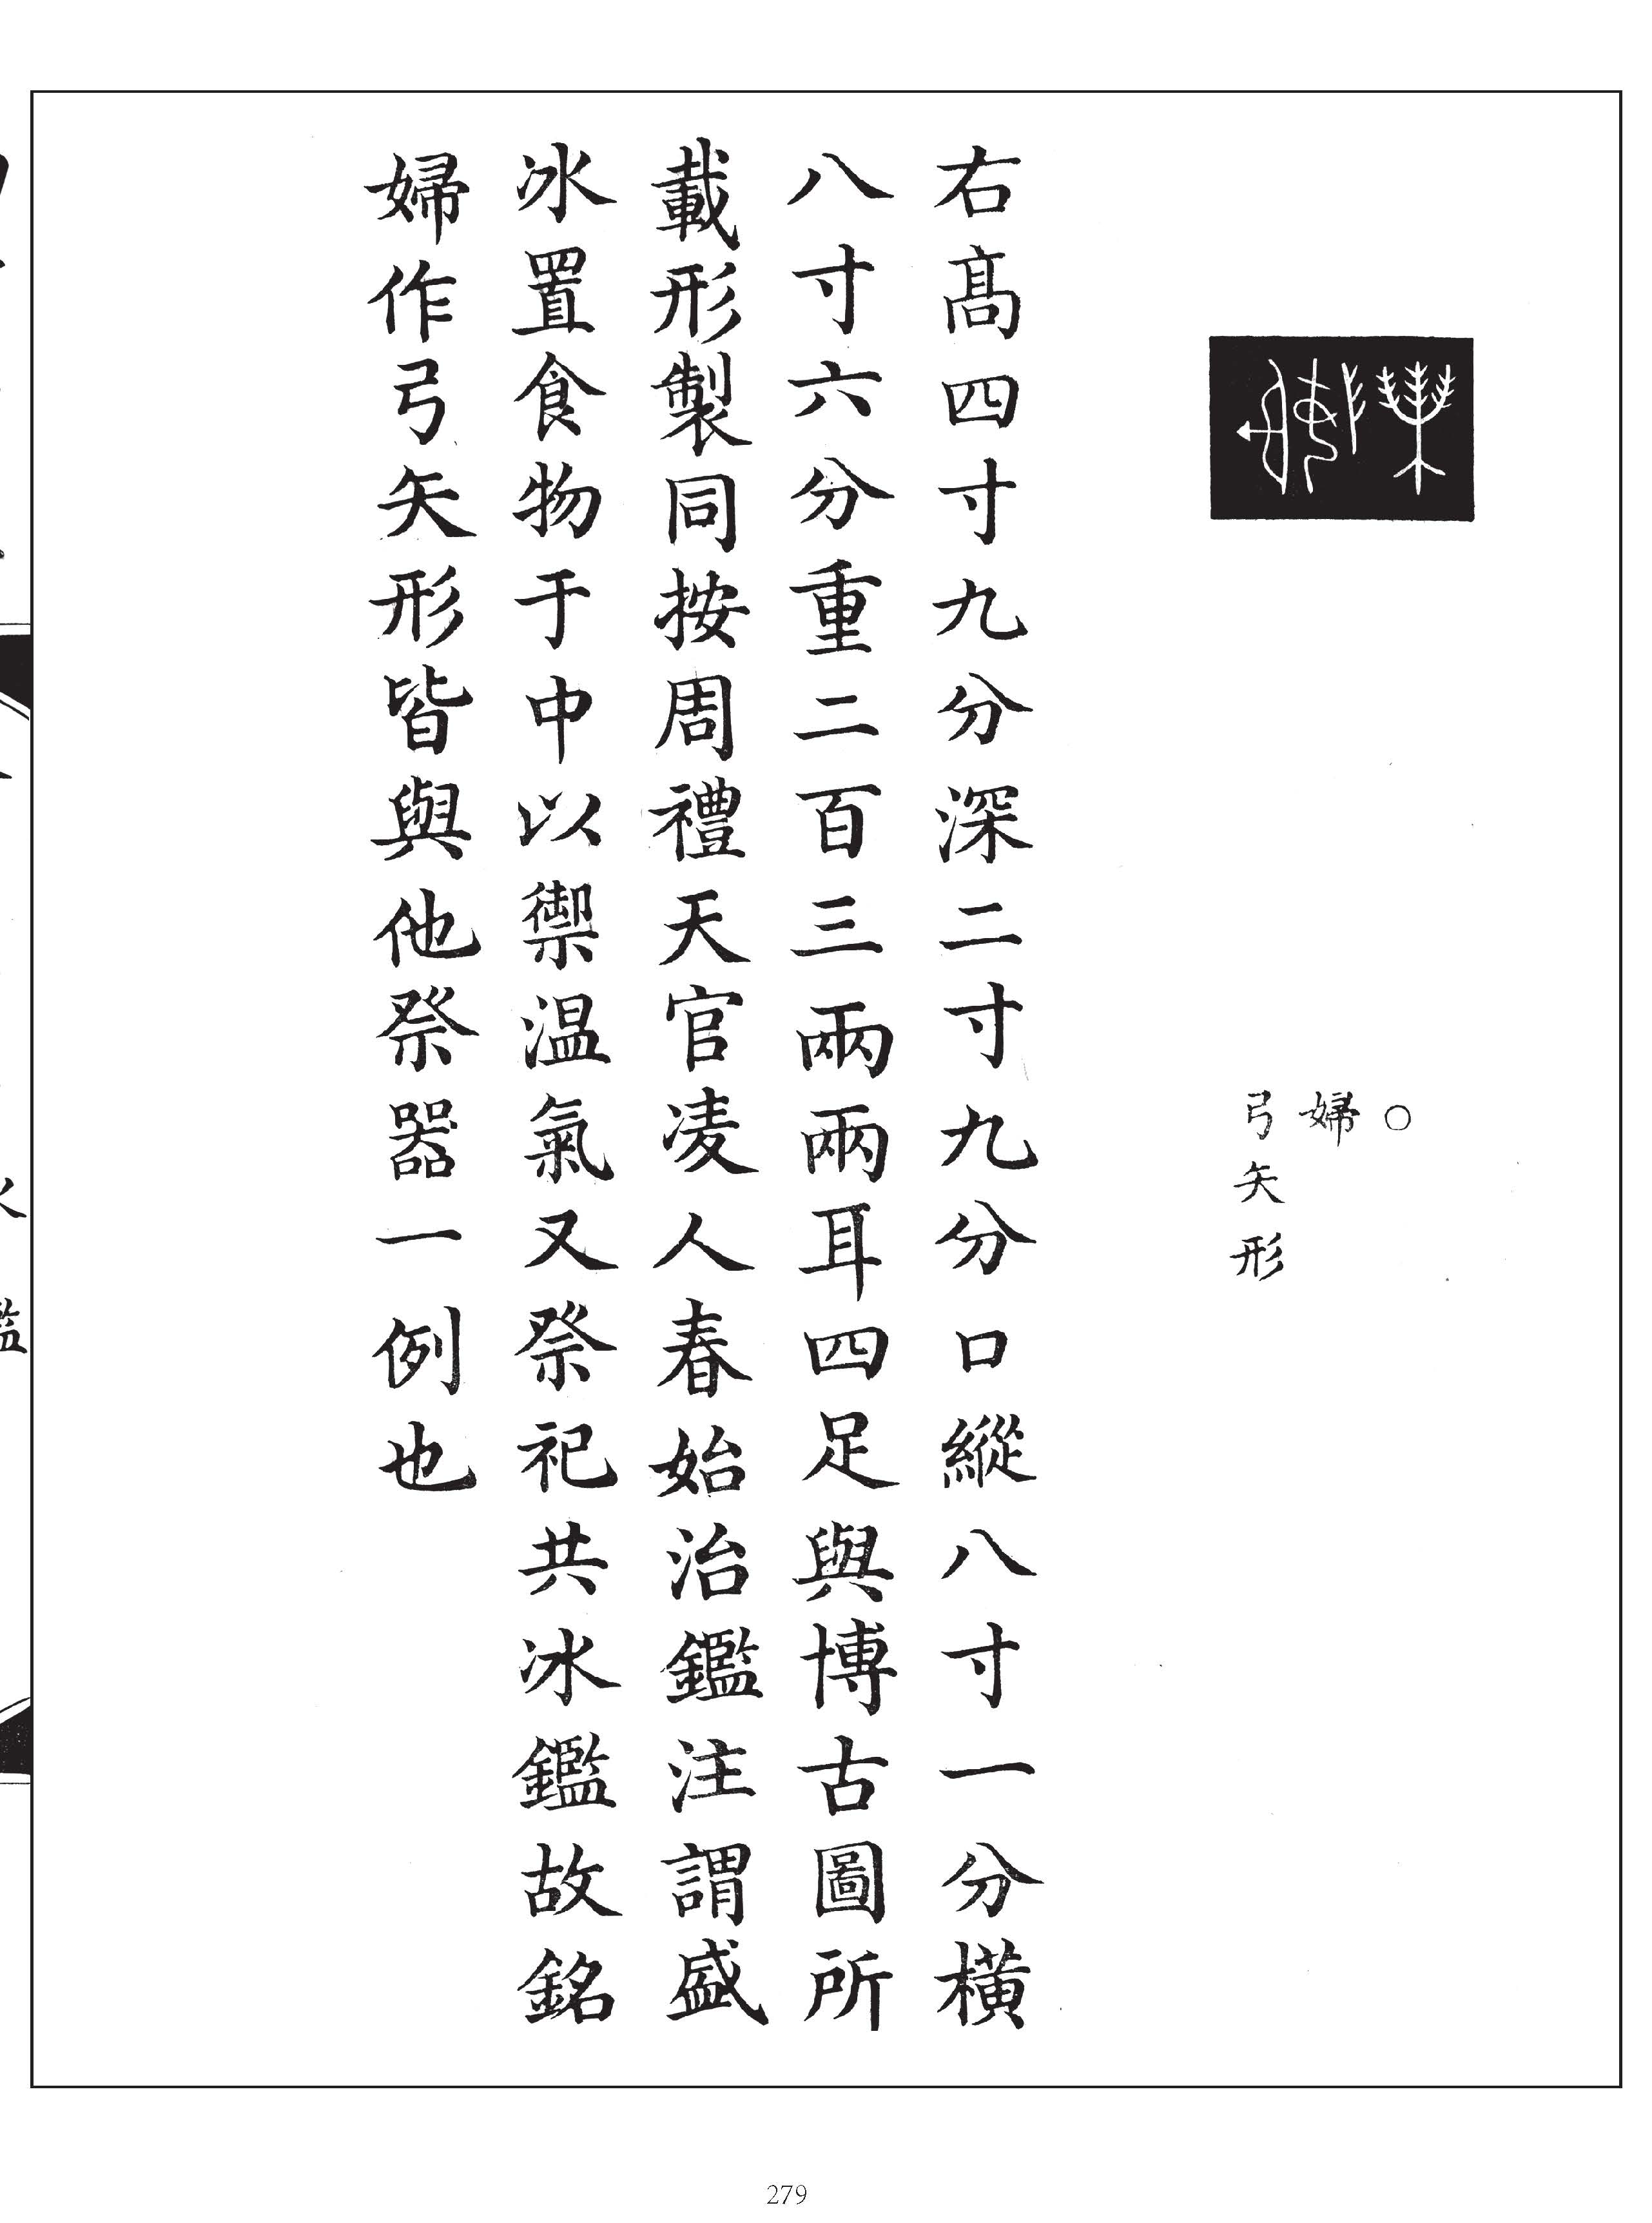 ○
婦
弓矢形
右髙四寸九分深二寸九分口縱八寸一分橫
八寸六分重二百三兩兩耳四足與博古圖所
載形製同按周禮天官凌人春始治鑑注謂盛
冰置食物于中以禦溫氣又祭祀共冰鑑故銘
婦作弓矢形皆與他祭器一例也
279